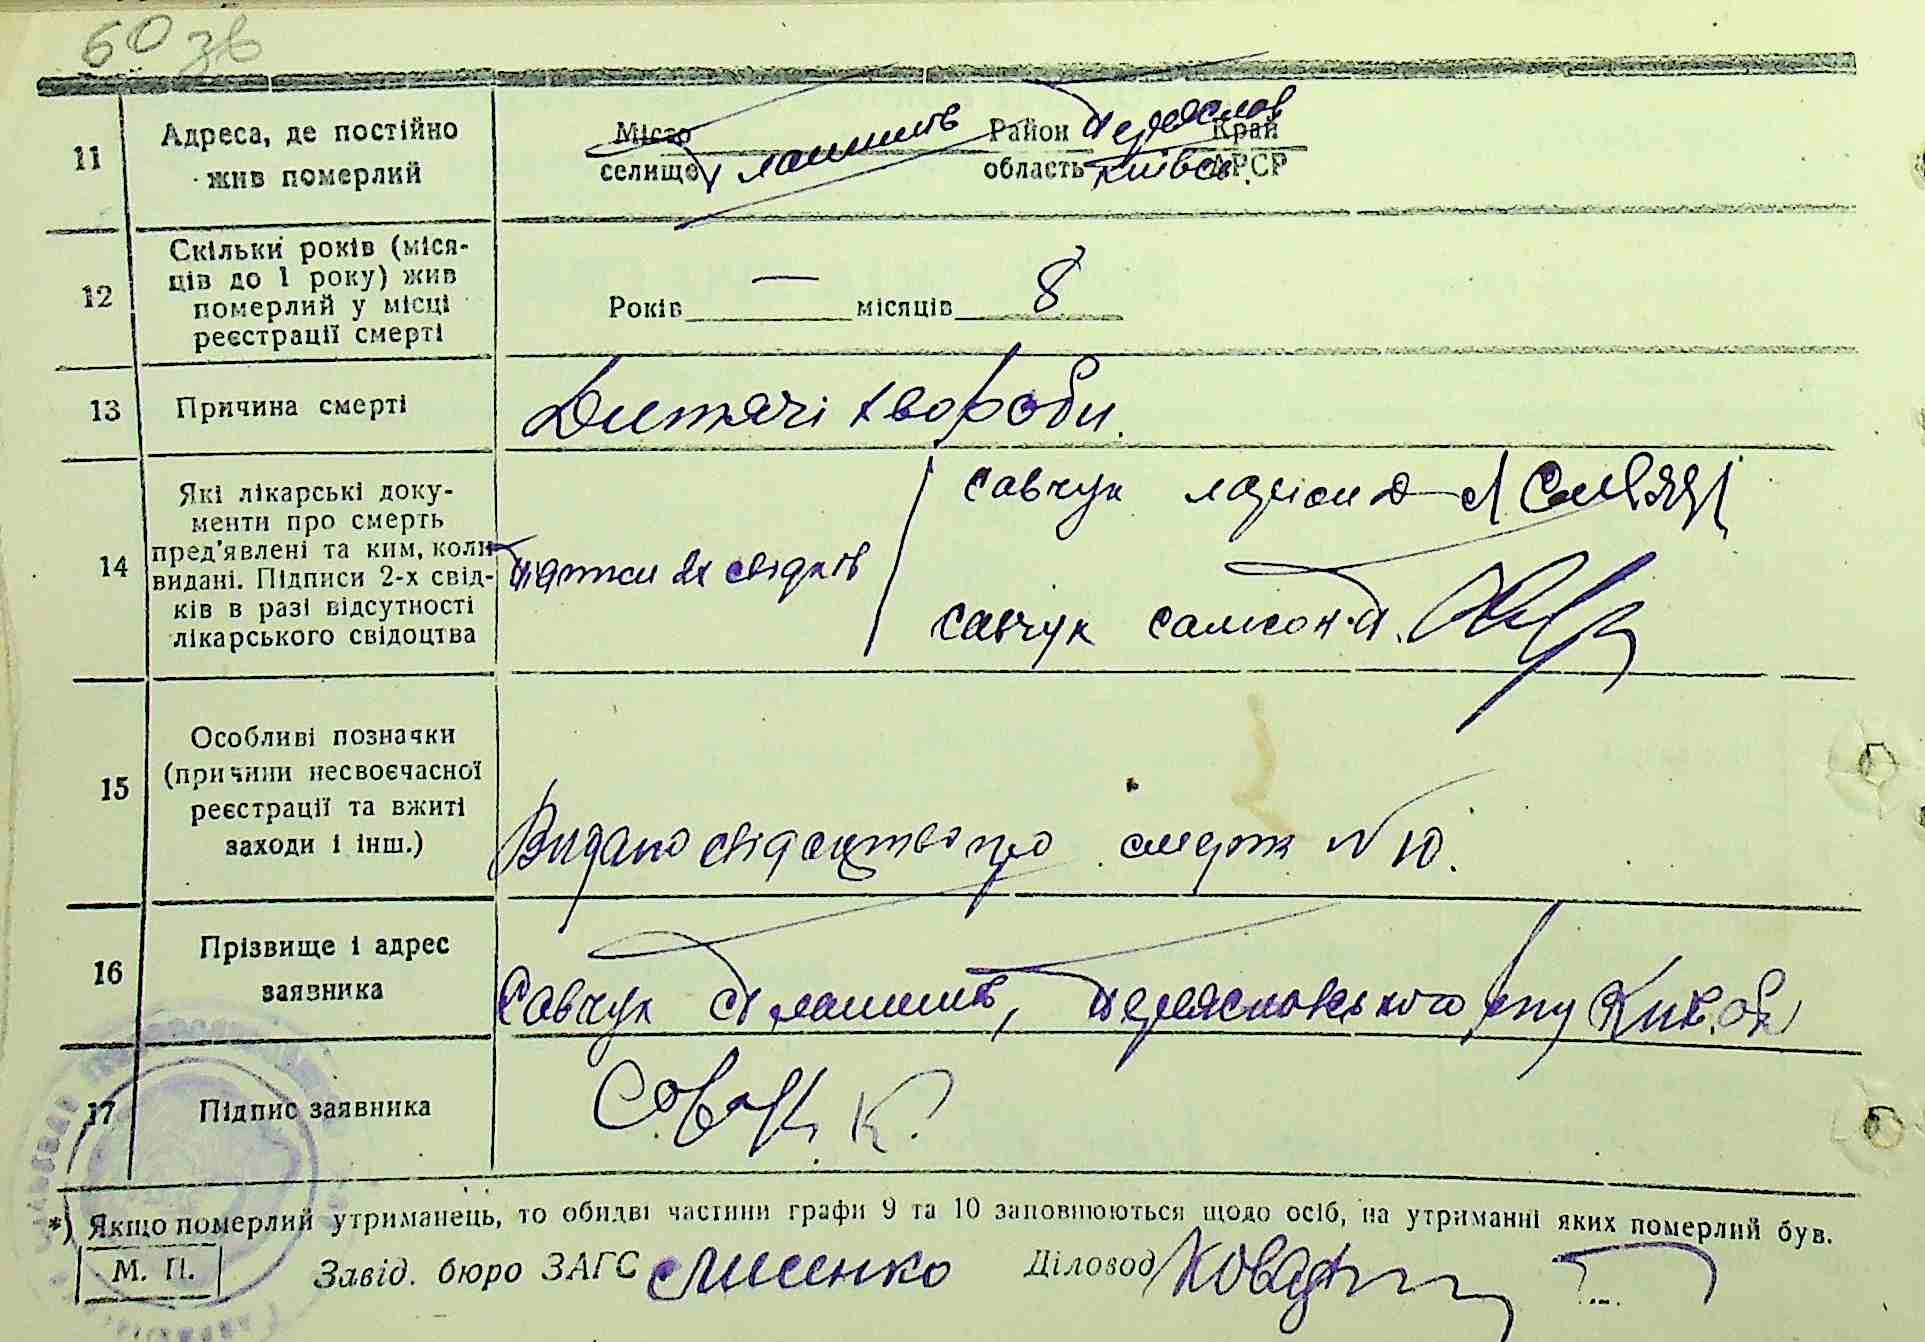 60 зв
11
Адреса, де постійно
жив померлий
Місто Район Переяслов Край
селище Гланишів область Київсь. АРСР
12
Скільки років (міся-
ців до 1 року) жив
померлий у місці
реєстрації смерті
Років — місяців 8
13
Причина смерті
Дитячі хвороби.
14
Які лікарські доку-
менти про смерть
пред'явлені та ким, коли
видані. Підписи 2-х свід-
ків в разі відсутності
лікарського свідоцтва
Підписи 2х свідків
Савчук
Савчук Самсон
15
Особливі позначки
(причини несвоєчасної
реєстрації та вжиті
заходи і інш.)
Видано свідоцтво про смерть N 10.
16
Прізвище і адрес
заявника
Савчук с Гланишів, Переясловського р-ну Київ. об
17
Підпис заявника
*) Якщо померлий утриманець, то обидві частини графи 9 та 10 заповнюються щодо осіб, на утриманні яких померлий був.
М. П.
Завід. бюро ЗАГС Лисенко Діловод